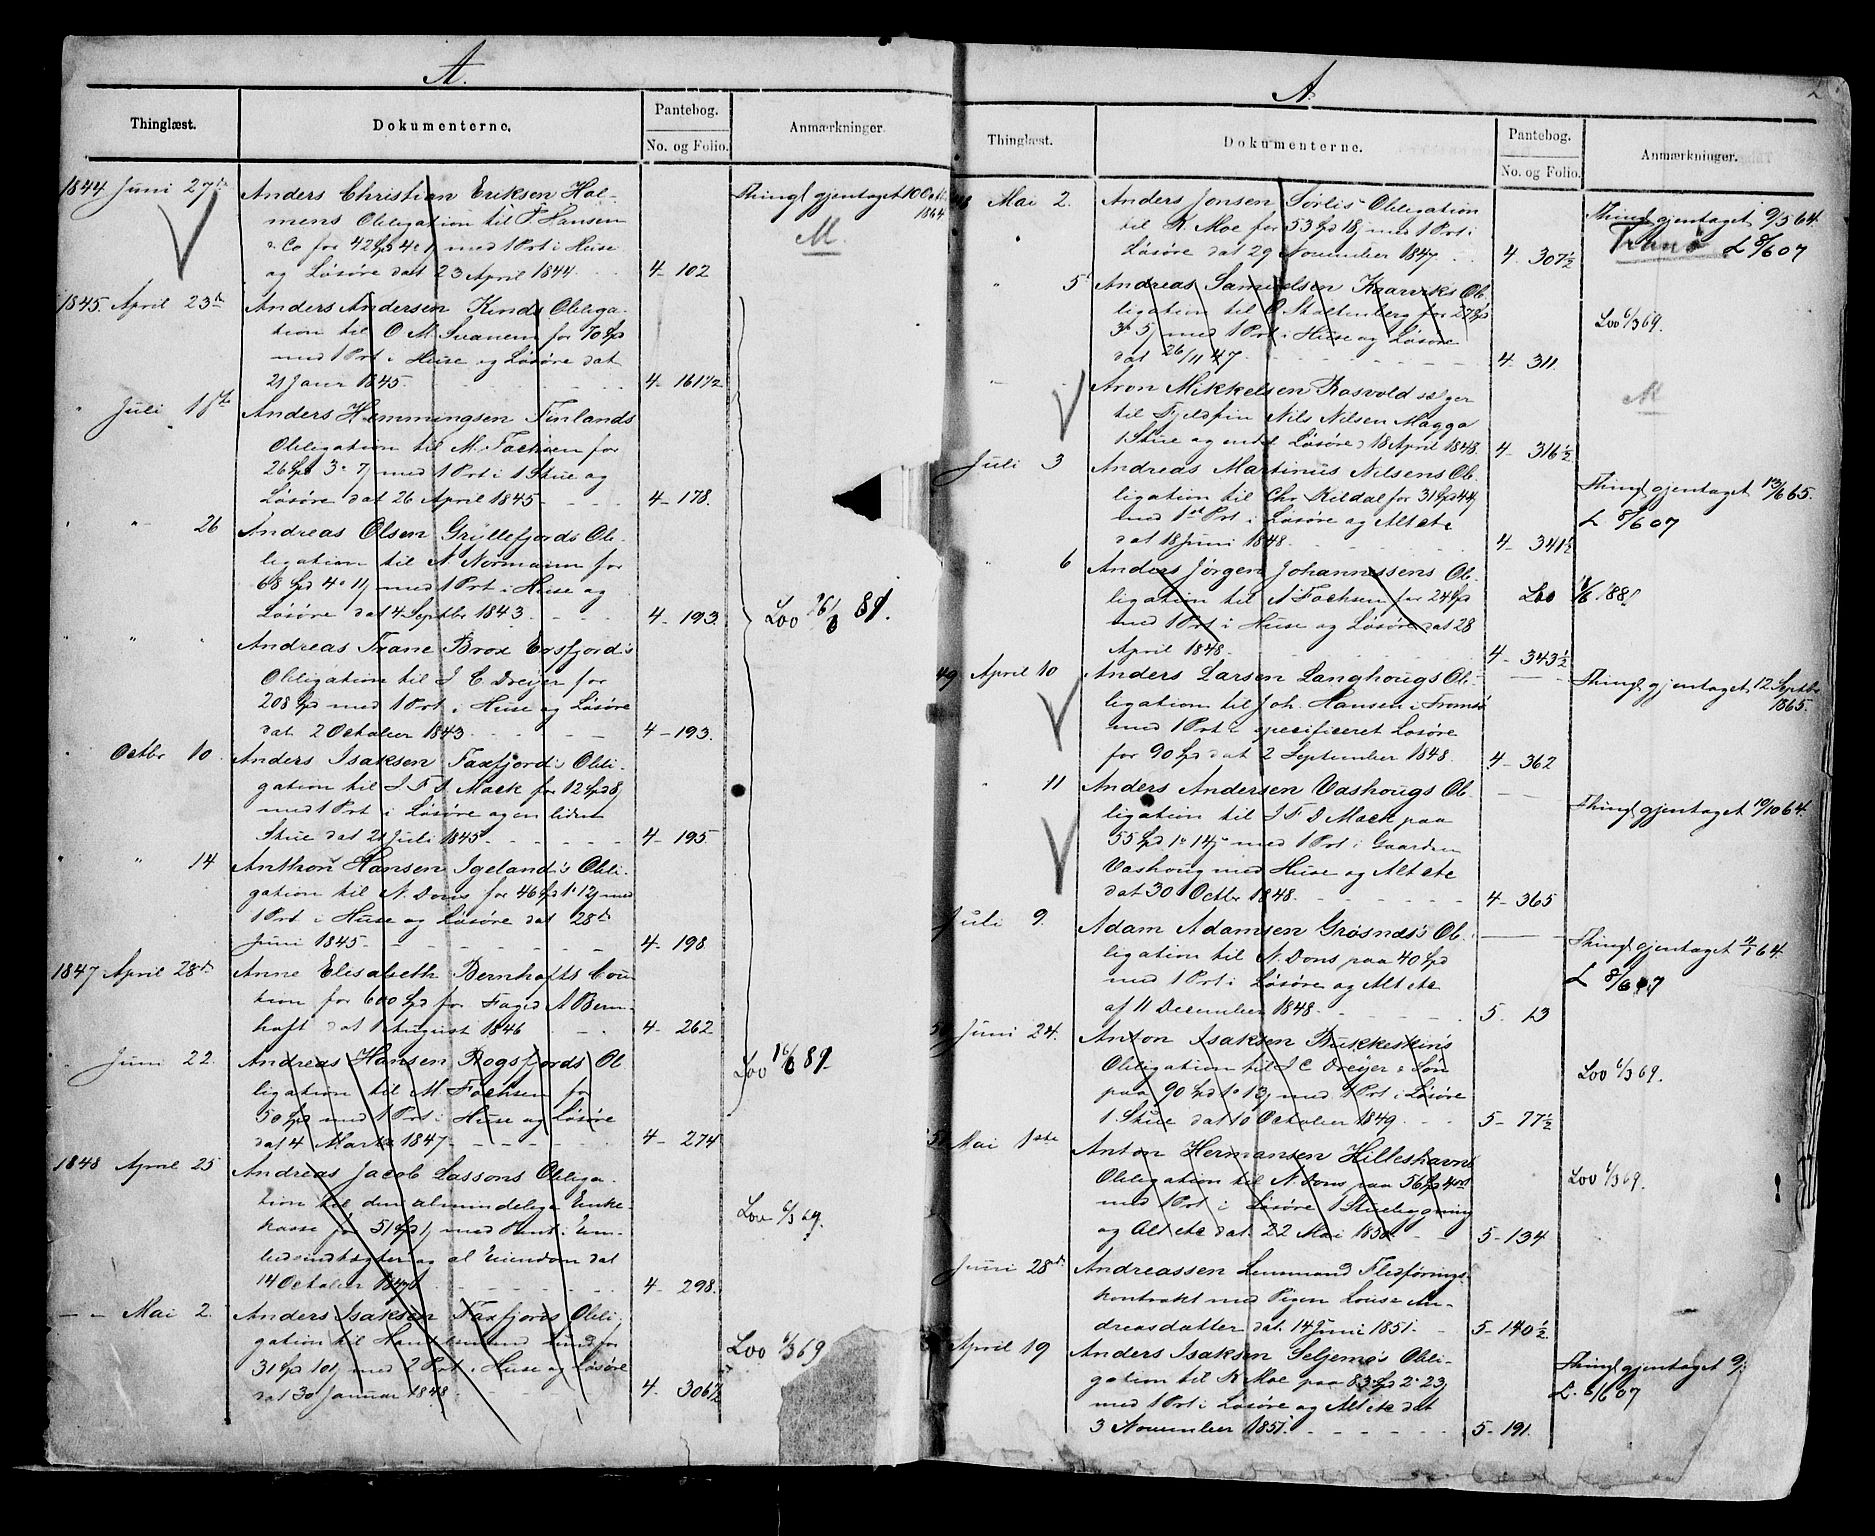 A.
Thinglæst.
Dokumenterne.
Pantebog.
No. og Folio.
Anmærkninger.
1844 Juni 27de
Anders Christian Eriksen Hol-
mens Obligation til F Hansen
& Co for 42 Spd 4 ... med 1 Prt i Huse
og Løsøre dat 23 April 1844
4 - 102
Thingl gjentaget 10 Octbr
1864
M.
1845. April 23de
Anders Andersen Kinds Obliga-
tion til O M. Svanem for 70 Spd
med 1 Prt i Huse og Løsøre dat
21 Janr 1845.
4 - 161 1/2
" Juli 18de
Anders Hemmingsen Finlands
Obligation til M. Fochsen for
26 Spd 3 " 7 med 1 Prt i 1 Stue og
Løsøre dat 26 April 1845
4 - 178.
" " 26
Andreas Olsen Gryllefjords Ob-
ligation til N Normann for
68 Spd 4 " 11 med 1 Prt i Huse og
Løsøre dat 4 Septbr 1843
4 - 193.
Loo 26/6 89.
" " "
Andreas Trane Brox Ersfjord's
Obligation til J. C. Dreyer for
208 Spd med 1 Prt i Huse og Løsøre
dat 2 October 1843
4 - 193.
" Octbr 10
Anders Isaksen Faxfjords Obli-
gation til J F D Mack for 12 Spd 8
med 1 Prt i Løsøre og en liden
Stue dat 21 Juli 1845
4 - 195.
" " 14
Anthon Hansen Igeland's Obli-
gation til N. Dons for 46 Spd 1 " 12 med
1 Prt i Huse og Løsøre dat 28de
Juni 1845
4 - 198
1847 April 28de
Anne Elisabeth Bernhofts Cau-
tion for 600 Spd for Foged A Bern-
hoft dat 1 August 1846
4 - 262
" Juni 22.
Andreas Hansen Rogsfjords Ob
ligation til M. Fochsen for
50 Spd med 1 Prt i Huse og Løsøre
dat 4 Marts 1847
4 - 274
Loo 16/6 89.
1848 April 25
Andreas Jacob Lassons Obliga-
tion til den almindelige Enke-
kasse for 51 Spd med Pant i Em-
bedsindtægter og al Eiendom dat
14 October 1846
4 - 298.
Loo 6/3 69.
- - Mai 2.
Anders Isaksen Faxfjords Obli-
gation til Handelsmand Lund for
31 Spd 101 med 2 Prt i Huse og Løsøre
dat 30 Januar 1848
4. 306 1/2
Loo 6/3 69
A.
2
Thinglæst.
Dokumenterne.
Pantebog.
No. og Folio.
Anmærkninger.
48 Mai 2.
Anders Jonsen Sørlis Obligation
til K. Moe for 53 Spd 18 med 1 Prt i
Løsøre dat 29 November 1847
4. 307 1/2
Thingl gjentaget 9/5 64.
Tranø L 8/6 07
" 5
Andreas Samuelsen Kaarviks Ob-
ligation til C Stoltenberg for 27 Spd
3 " 5 med 1 Prt i Huse og Løsøre
dat 26/11 47
4 - 311.
Loo 6/3 69.
Aron Mikkelsen Rosvold sælger
til Fjeldfin Nils Nilsen Magga
1 Stue og endel Løsøre d 18 April 1848.
4 - 316 1/2
M
Juli 3
Andreas Martinus Nilsens Ob-
ligation til Chr Kildal for 31 Spd 44
med 1st Prt i Løsøre og Alt etc
dat 18 Juni 1848
4 - 341 1/2
Thingl gjentaget 13/6 65.
L 8/6 07
6
Anders Jørgen Johannessens Ob-
ligation til N Fochsen for 24 Spd
med 1 Prt i Huse og Løsøre dat 28
April 1848
4 - 343 1/2
Loo 16/6 1881
49 April 10
Anders Larsen Langhougs Ob-
ligation til Joh. Hansen i Tromsø
med 1 Prt i specificeret Løsøre
for 90 Spd dat 2 September 1848
4 - 362
Thingl gjentaget 12 Septbr
1865.
" 11
Anders Andersen Vashougs Ob
ligation til J F D Mack paa
55 Spd 1 " 14 med 1 Prt i Gaarden
Vashoug med Huse og Alt etc
dat 30 Octbr 1848.
4 - 365
Thingl gjentaget 10/10 64.
Juli 9.
Adam Adamsen Grøsnæs's Ob-
ligation til N. Dons paa 40 Spd
med 1 Prt i Løsøre og Alt etc
af 11 December 1848
5. 13
Thingl gjentaget 4/1 64.
L 8/6 07
50 Juni 24.
Anton Isaksen Bukkeskins
Obligation til J C Dreyer & Søn
paa 90 Spd 1 " 13 med 1 Prt i Løsøre
1 Stue dat 10 October 1849
5 - 77 1/2
Loo 6/3 69.
51 Mai 1ste
Anton Hermansen Hilleshavns
Obligation til N Dons paa 56 Spd 4 ort
med 1 Prt i Løsøre 1 Stuebygning
og Alt etc dat. 22 Mai 1850
5 - 134
Loo 6/3 69.
Juni 28de
Andreassen Lenmand Fledførings-
kontrakt med Pigen Louise An-
dreasdatter dat. 14 Juni 1851
5 - 140 1/2
April 19
Anders Isaksen Seljemo's Obli-
gation til K Moe paa 83 Spd 2 " 23
med 1 Prt i Løsøre og Alt etc dat
3 November 1851.
5 - 191.
Thingl gjentaget 9/
L. 8/6 07